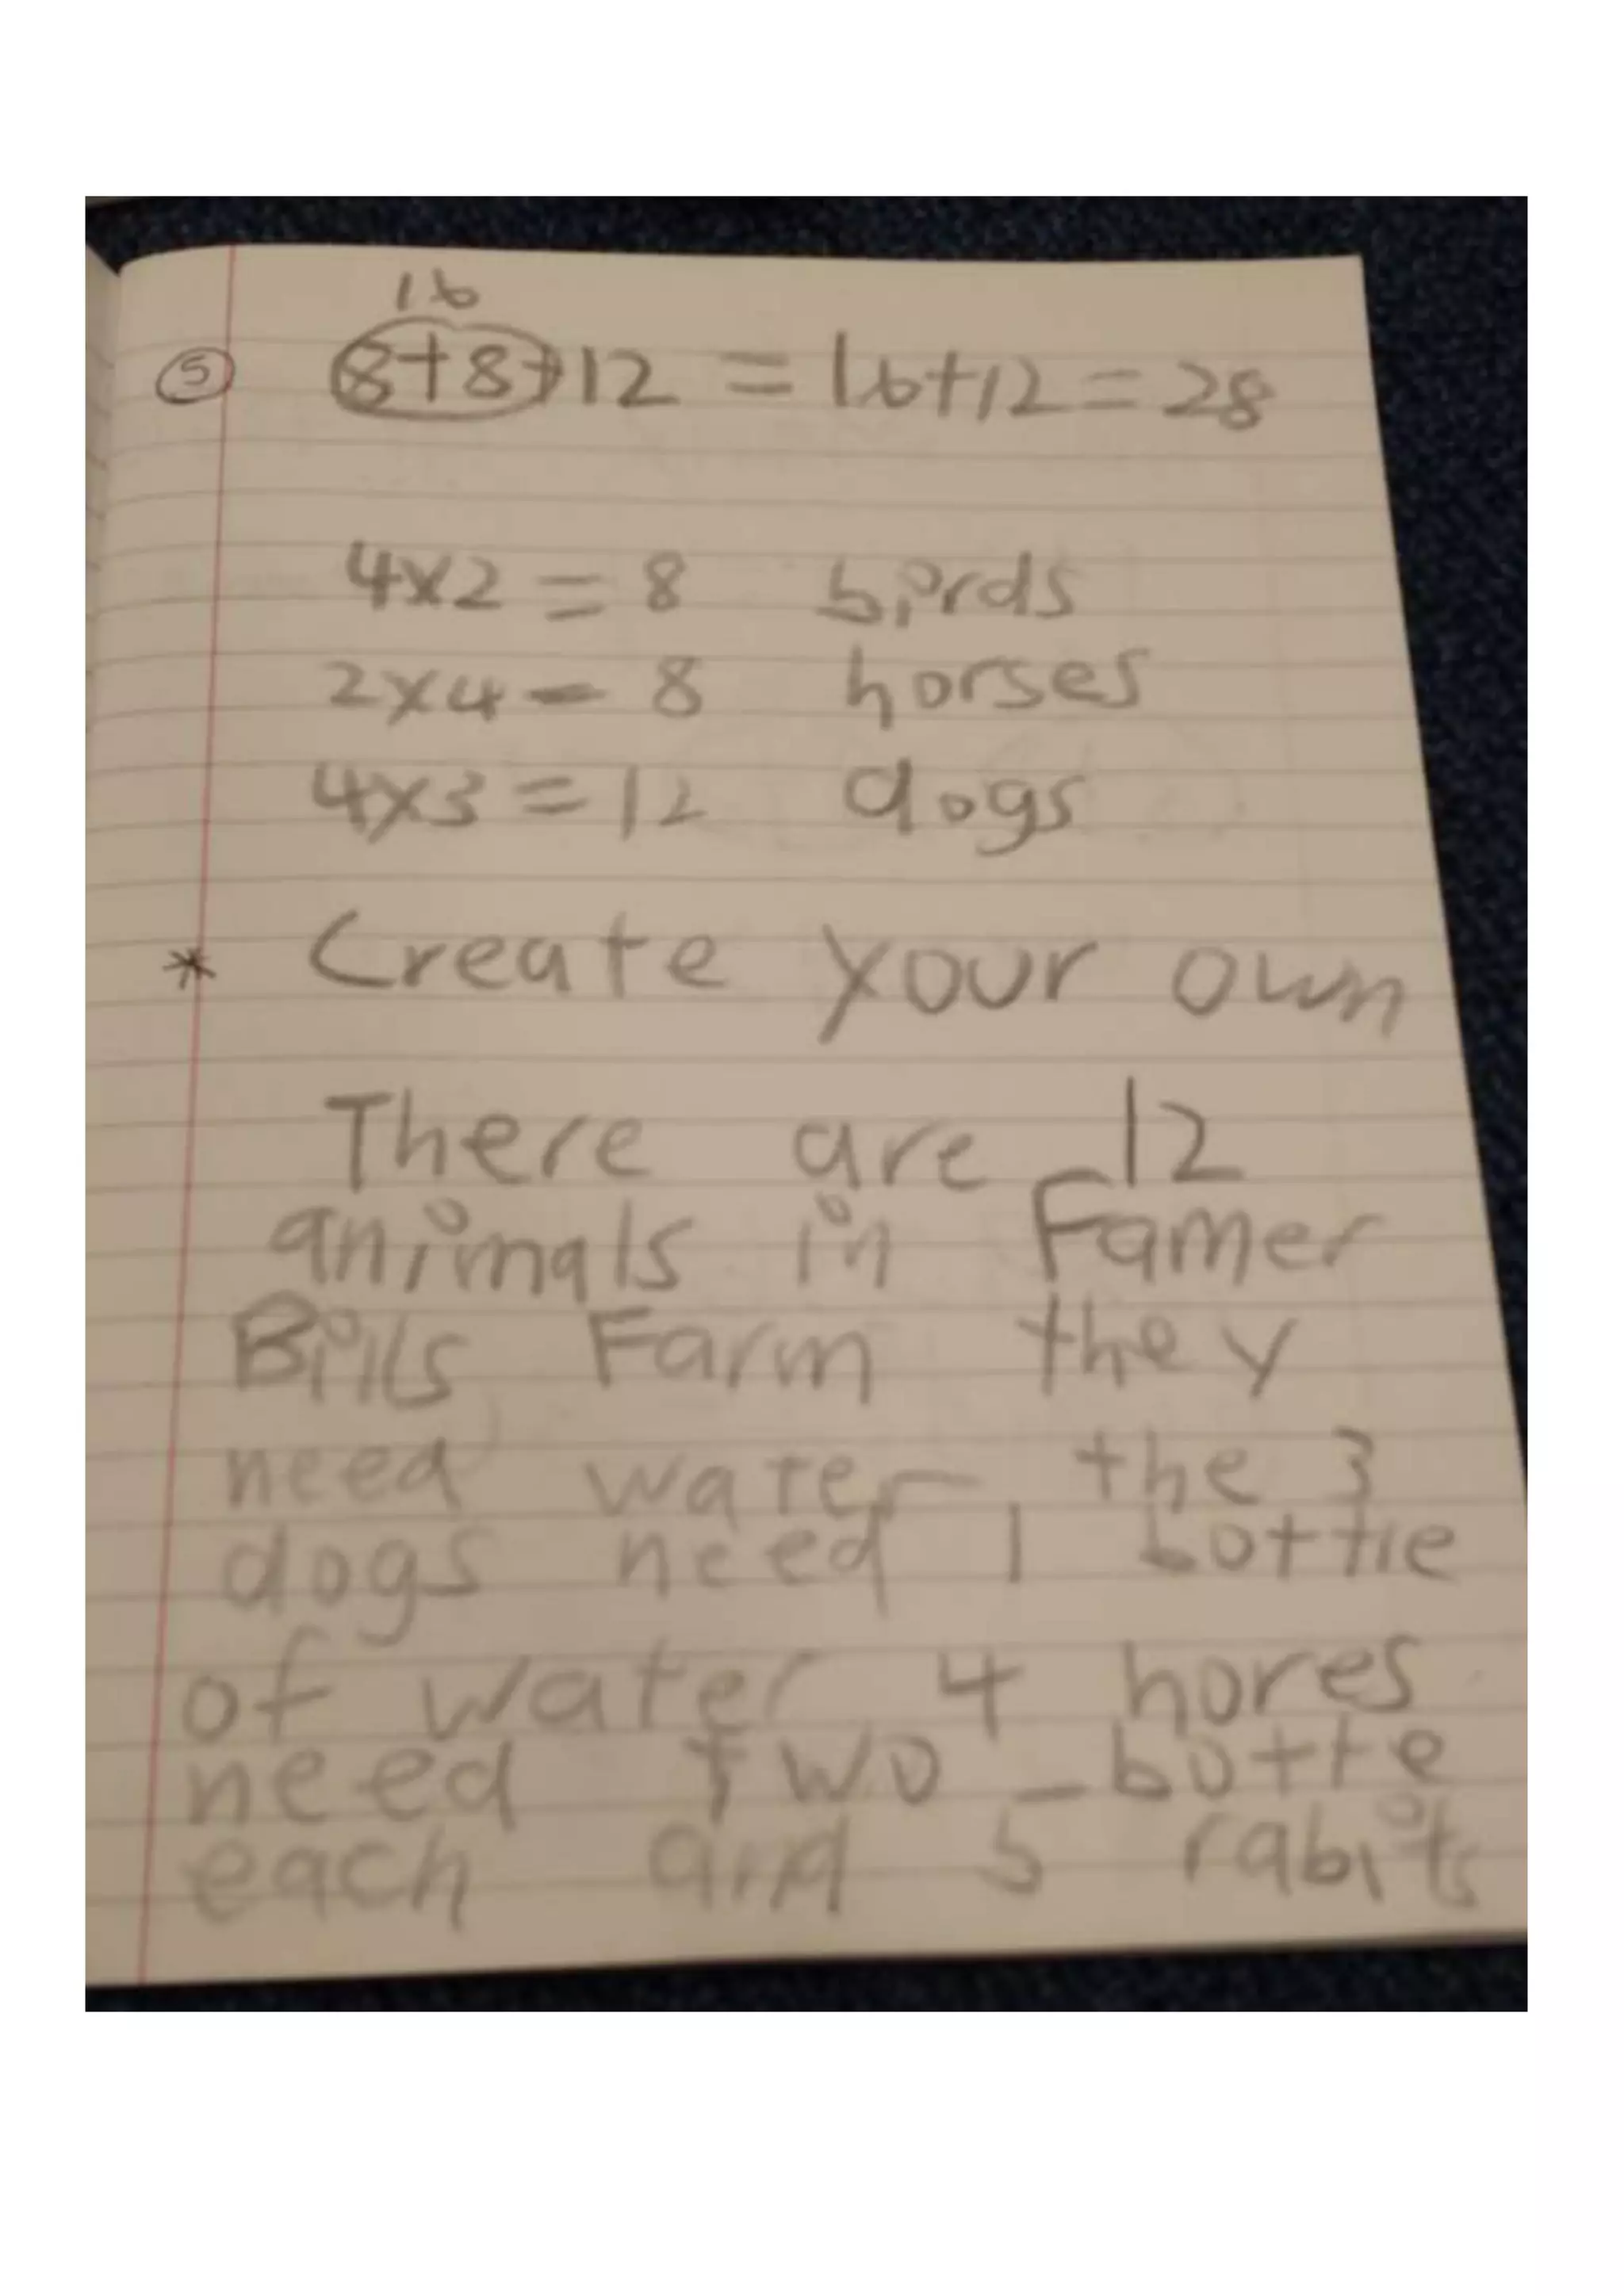 16
⑤ 8+8+12 = 16+12 = 28
4x2 = 8 birds
2x4 = 8 horses
4x3 = 12 dogs
* Create your own
There are 12
animals in Famer
Bills Farm they
need water, the 3
dogs need 1 bottle
of water 4 hores
need two botte
each and 5 rabits